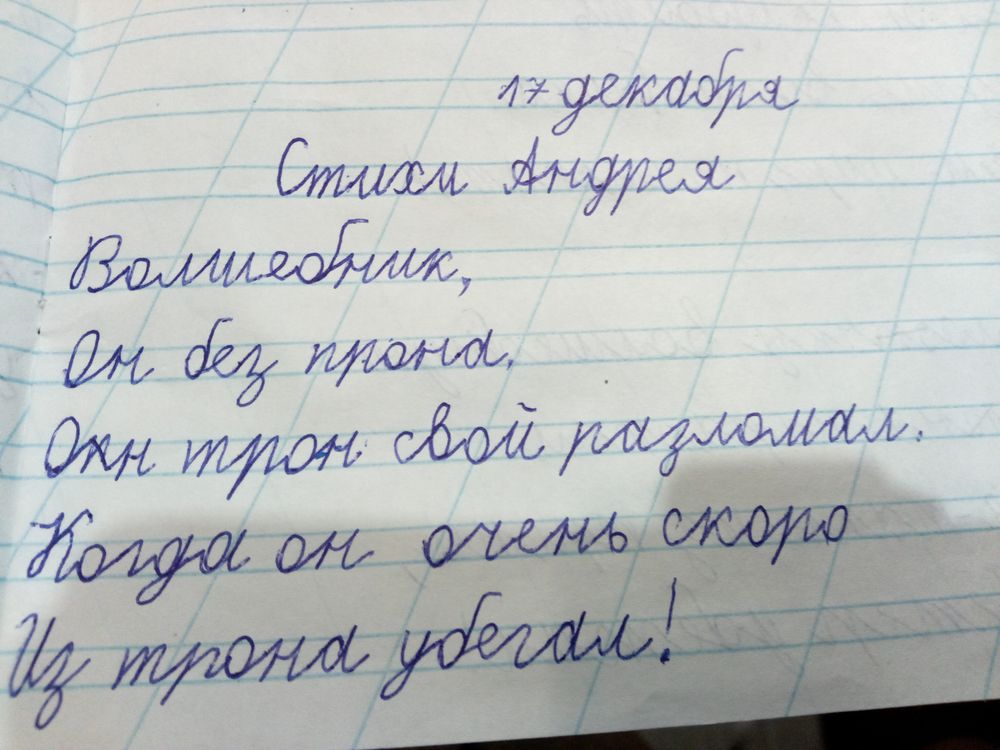 17 декабря
Стихи Андрея
Волшебник,
Он без трона.
Он трон свой разломал.
Когда он очень скоро
Из трона убегал!